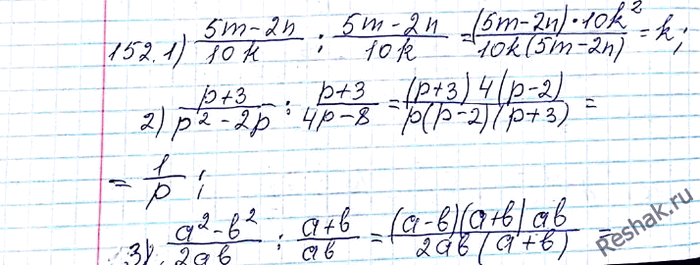 152. 1) (5m-2n)/(10k) : (5m-2n)/(10k) = ((5m-2n)·10k²)/(10k(5m-2n)) = k;
2) (p+3)/(p²-2p) : (p+3)/(4p-8) = ((p+3)4(p-2))/(p(p-2)(p+3)) =
= 1/p ;
3) (a²-b²)/(2ab) : (a+b)/(ab) = ((a-b)(a+b)ab)/(2ab(a+b)) =
Reshak.ru